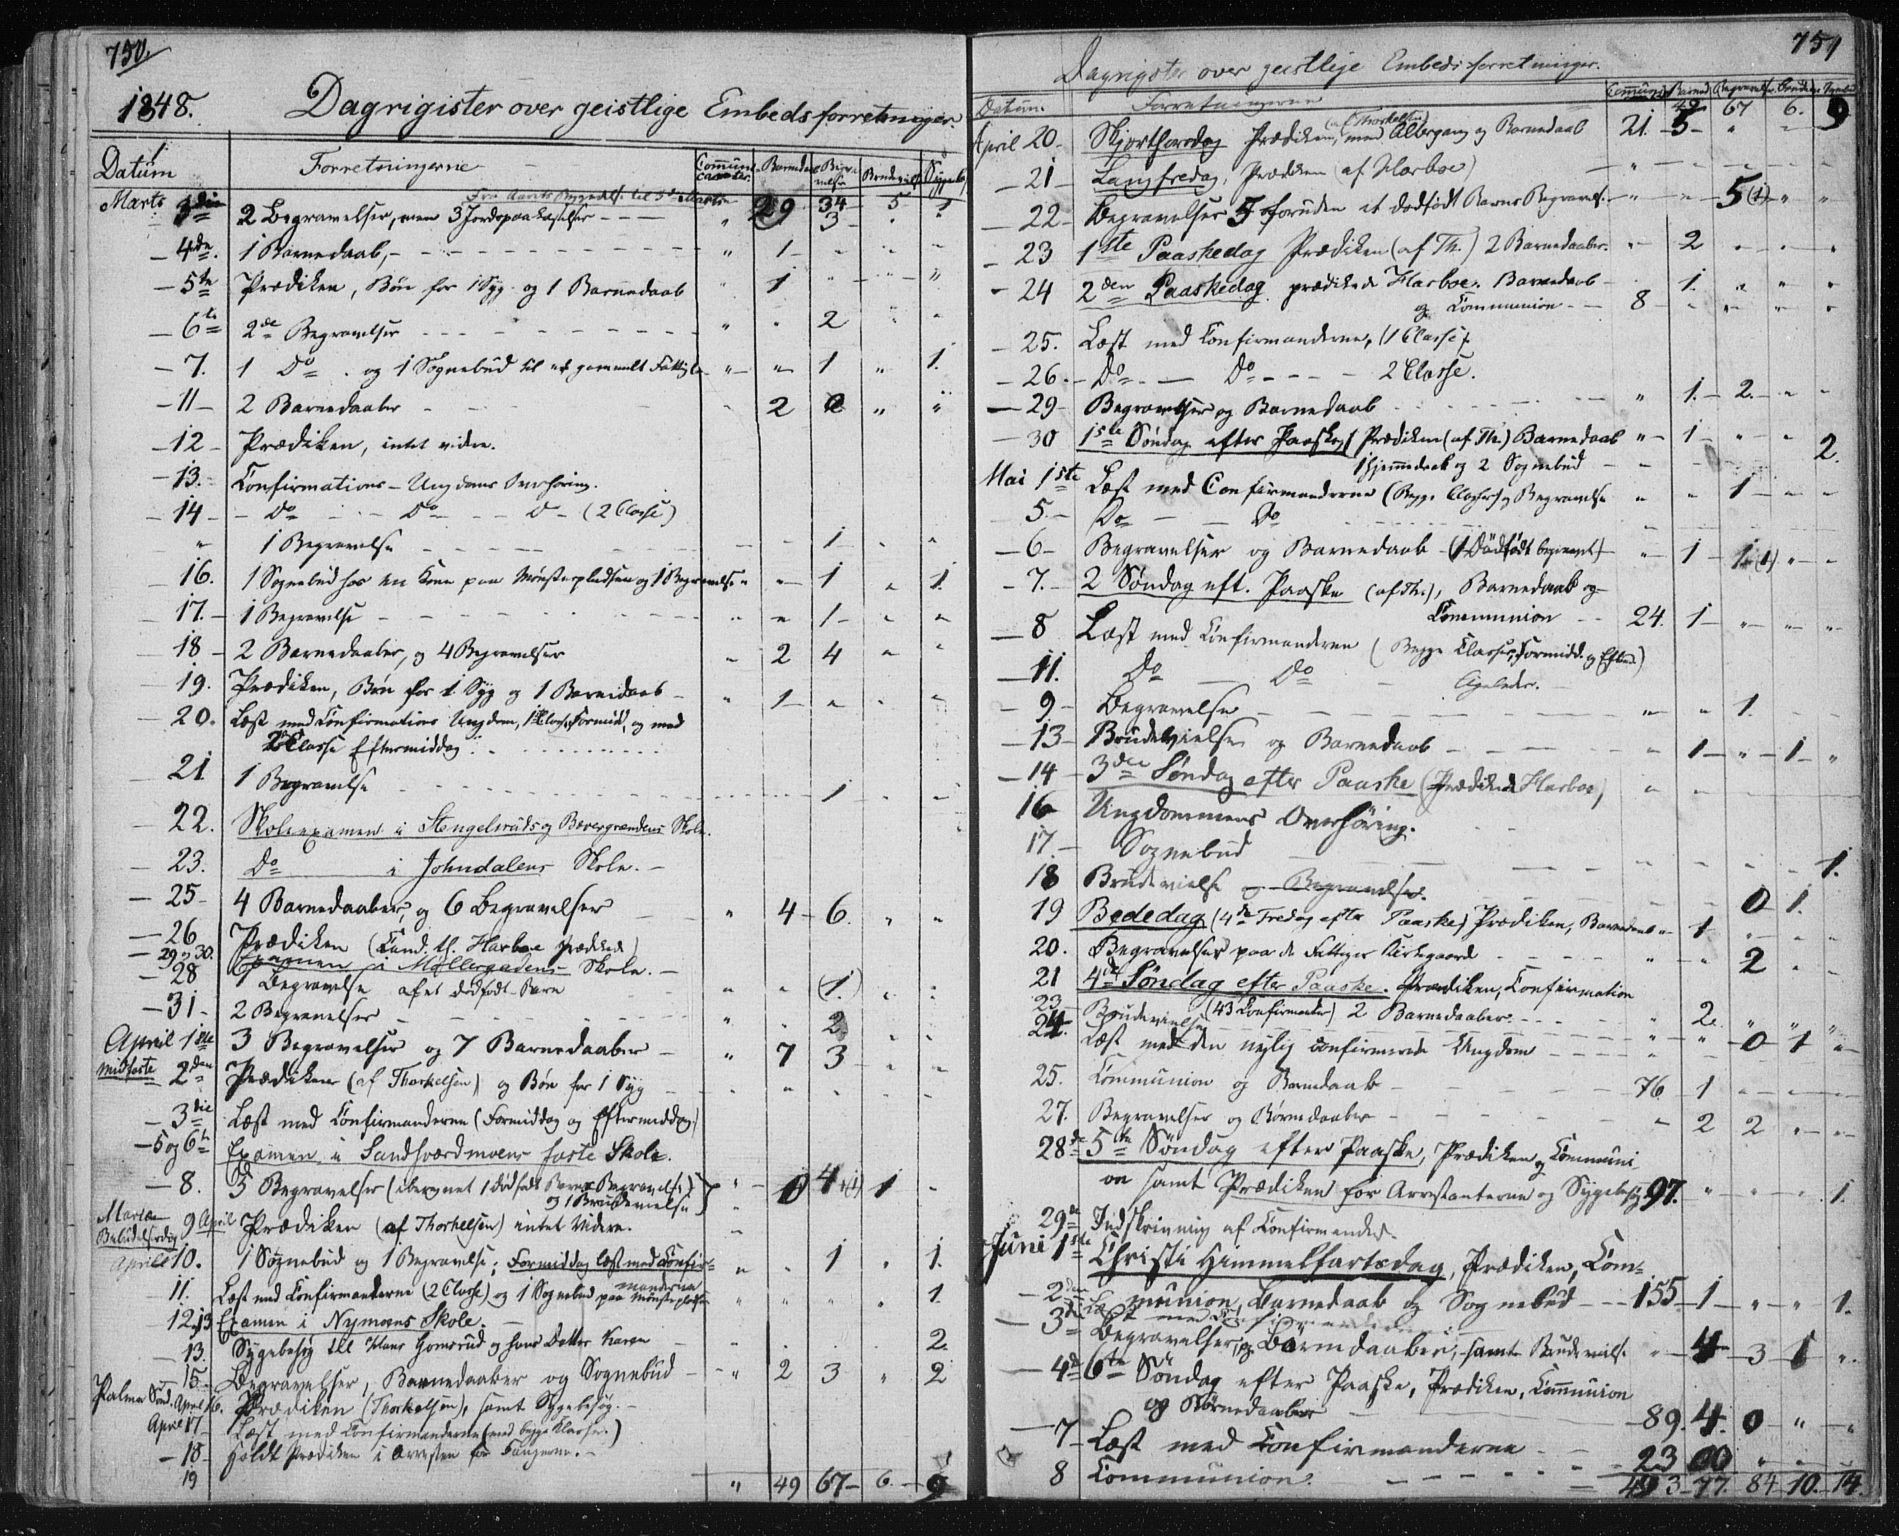 750.
1848. Dagrigister over geistlige Embedsforretninger.
Datum Forretningerne Communicanter. Barnedaab Begravelser Brudevielse Sygeb.
Fra Aarets Begyndelse til 3die Marts
Marts 3die 2 Begravelser, men 3 Jordspaakastelser " 29 34 3 5 1
4de. 1 Barnedaab, " 1
5te Prædiken, Bøn for 1 Syg og 1 Barnedaab 1 " "
6te 2de Begravelser " " 2 " "
7. 1 Do og 1 Sognebud til et gammelt Fattigl. " " 1 " 1.
11 2 Barnedaaber 2 " "
12 Prædiken, intet videre.
13. Confirmations-Ungdoms Overhøring.
14 Do Do Do (2 Classe)
" 1 Begravelse 1
16. 1 Sognebud hos en Kone paa Mønsterpladsen og 1 Begravelse " " 1 " 1
17. 1 Begravelse " " 1 " "
18 2 Barnedaaber, og 4 Begravelser " 2 4 " "
19. Prædiken, Bøn for 1 Syg og 1 Barnedaab " 1 " "
20. Læst med Confirmations Ungdom, 1ste Classe Formidd. og med
2de Classe Eftermiddag
21 1 Begravelse 1
22. Skoleexamen i Stengelsruds og Bævergrændens Skole.
23. Do i Johndalens Skole.
25 4 Barnedaaber, og 6 Begravelser " 4 6. " "
26 Prædiken (Cand. th. Harboe prædikede)
29 og 30. Examen i Møllergadens Skole.
28 1 Begravelse af et dødfødt Barn " " (1.) " "
31 2 Begravelser " 2
April 1ste 3 Begravelser og 7 Barnedaaber " 7 3 " "
Midfaste 2den Prædiken (af Thorkelsen) og Bøn for 1 Syg " "
3die Læst med Confirmanderne (Formiddag og Eftermiddag)
5 og 6te Examen i Sandsværdmoens faste Skole.
8. 5 Begravelser (iberegnet 1 dødfødt Barns Begravelse) " 0 4+(1) 1
og 1 Brudevielse
Mariæ Bebudelsesdag 9 April Prædiken (af Thorkelsen) intet videre.
April 10. 1 Sognebud og 1 Begravelse; Formiddag læst med Confir- " " 1 " 1.
manderne
11. Læst med Confirmanderne (2 Classe) og 1 Sognebud paa Mønsterpladsen " " " " 1.
12, 13 Examen i Nymoens Skole.
13. Sygebesøg til Hans Gomsrud og hans Datter Karen 2.
15. Begravelser, Barnedaaber og Sognebud " 2 3 " 2
Palme Sønd. April 16. Prædiken (Thorkelsen), samt Sygebesøg.
April 17 Læst med Confirmanderne (med begge Klasser.)
18 Holdt Prædiken i Arresten for Fangerne.
19 " 49 67 6. 9
751
Dagrigister over geistlige Embedsforretninger.
Datum. Forretningerne Communic. Barned. Begravelser Brudev. Sygeb.
49 67 6. 9
April 20 Skjærthorsdag Prædiken (af Thorkelsen), med Altergang og Barnedaab 21. 5 " "
21 Langfredag, Prædiken (af Harboe) "
22 Begravelser 5 foruden et dødfødt Barns Begravelse " " 5 (1) " "
23 1ste Paaskedag Prædiken (af Th.) 2 Barnedaaber. " 2 " " "
24 2den Paaskedag prædikede Harboe. Barnedaab 1. " " "
og Communion 8 " " " "
25. Læst med Confirmanderne, (1 Classe).
26. Do. Do 2 Classe.
29 Begravelser og Barnedaab " 1. 2. " "
30 1ste Søndag efter Paaske, Prædiken (af Th.) Barnedaab " 1 " " 2.
1 hjemmedaab og 2 Sognebud
Mai 1ste Læst med Confirmanderne (Begge Classer) og Begravelse " " 1 " "
5 Do Do
6 Begravelser og Barnedaab (1 Dødfødt begravet) " 1 1 (1) " "
7. 2 Søndag eft. Paaske (af Th.), Barnedaab og
Communion 24. 1 " " "
8 Læst med Confirmanderne (Begge Classer, Formidd. og Efterm.)
11. Do Do
9 Begravelse " " 1.
13 Brudevielse og Barnedaab " 1 " 1 "
14 3die Søndag efter Paaske (Prædikede Harboe) " "
16 Ungdommens Overhøring.
17. Sognebud 1.
18 Brudevielse og Begravelse. 0 1.
19 Bededag (4de Fredag efter Paaske) Prædiken, Barnedaab " 1 " " "
20. Begravelser paa de Fattiges Kirkegaard " " 2 "
21 4de Søndag efter Paaske. Prædiken, Confirmation
(43 Confirmander) 2 Barnedaaber. " 2. " " "
23 Brudevielse " " 0 1 "
24. Læst med den nylig confirmerede Ungdom
25. Communion og Barnedaab 76 1
27. Begravelser og Børnedaaber " 2 2 " "
28de 5te Søndag efter Paaske, Prædiken og Communi-
on samt Prædiken for Arrestanterne og Sygebesøg 97. " " " 1.
29de Indskrivning af Confirmander.
Juni 1ste Christi Himmelfartsdag, Prædiken, Com-
munion, Barnedaab og Sognebud 155 1 " " 1.
2den Læst med Confirmanderne
3die Begravelser, og Børnedaaber, samt Brudevielse " 4 3 1 "
4de 6te Søndag efter Paaske, Prædiken, Communion
og Børnedaaber 89. 4. 0 " "
7 Læst med Confirmanderne
8 Communion. 23 00 " "
493 77. 84 10. 14.